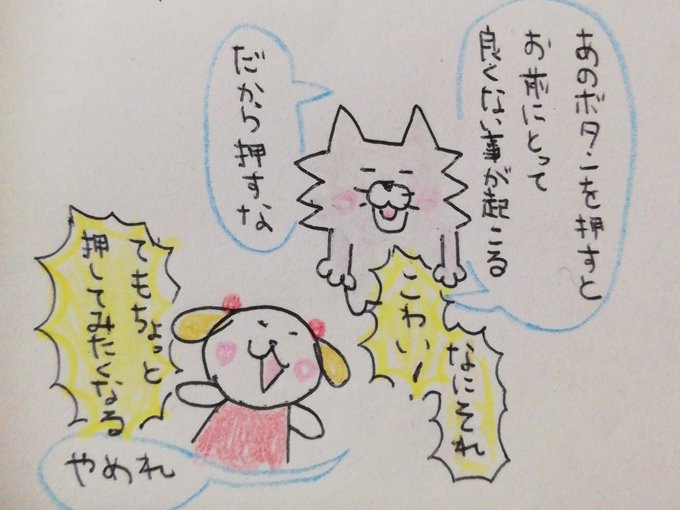 あのボタンを押すと
お前にとって
良くない事が起こる
だから押すな
なにそれ
こわい!
でもちょっと
押してみたくなる
やめれ